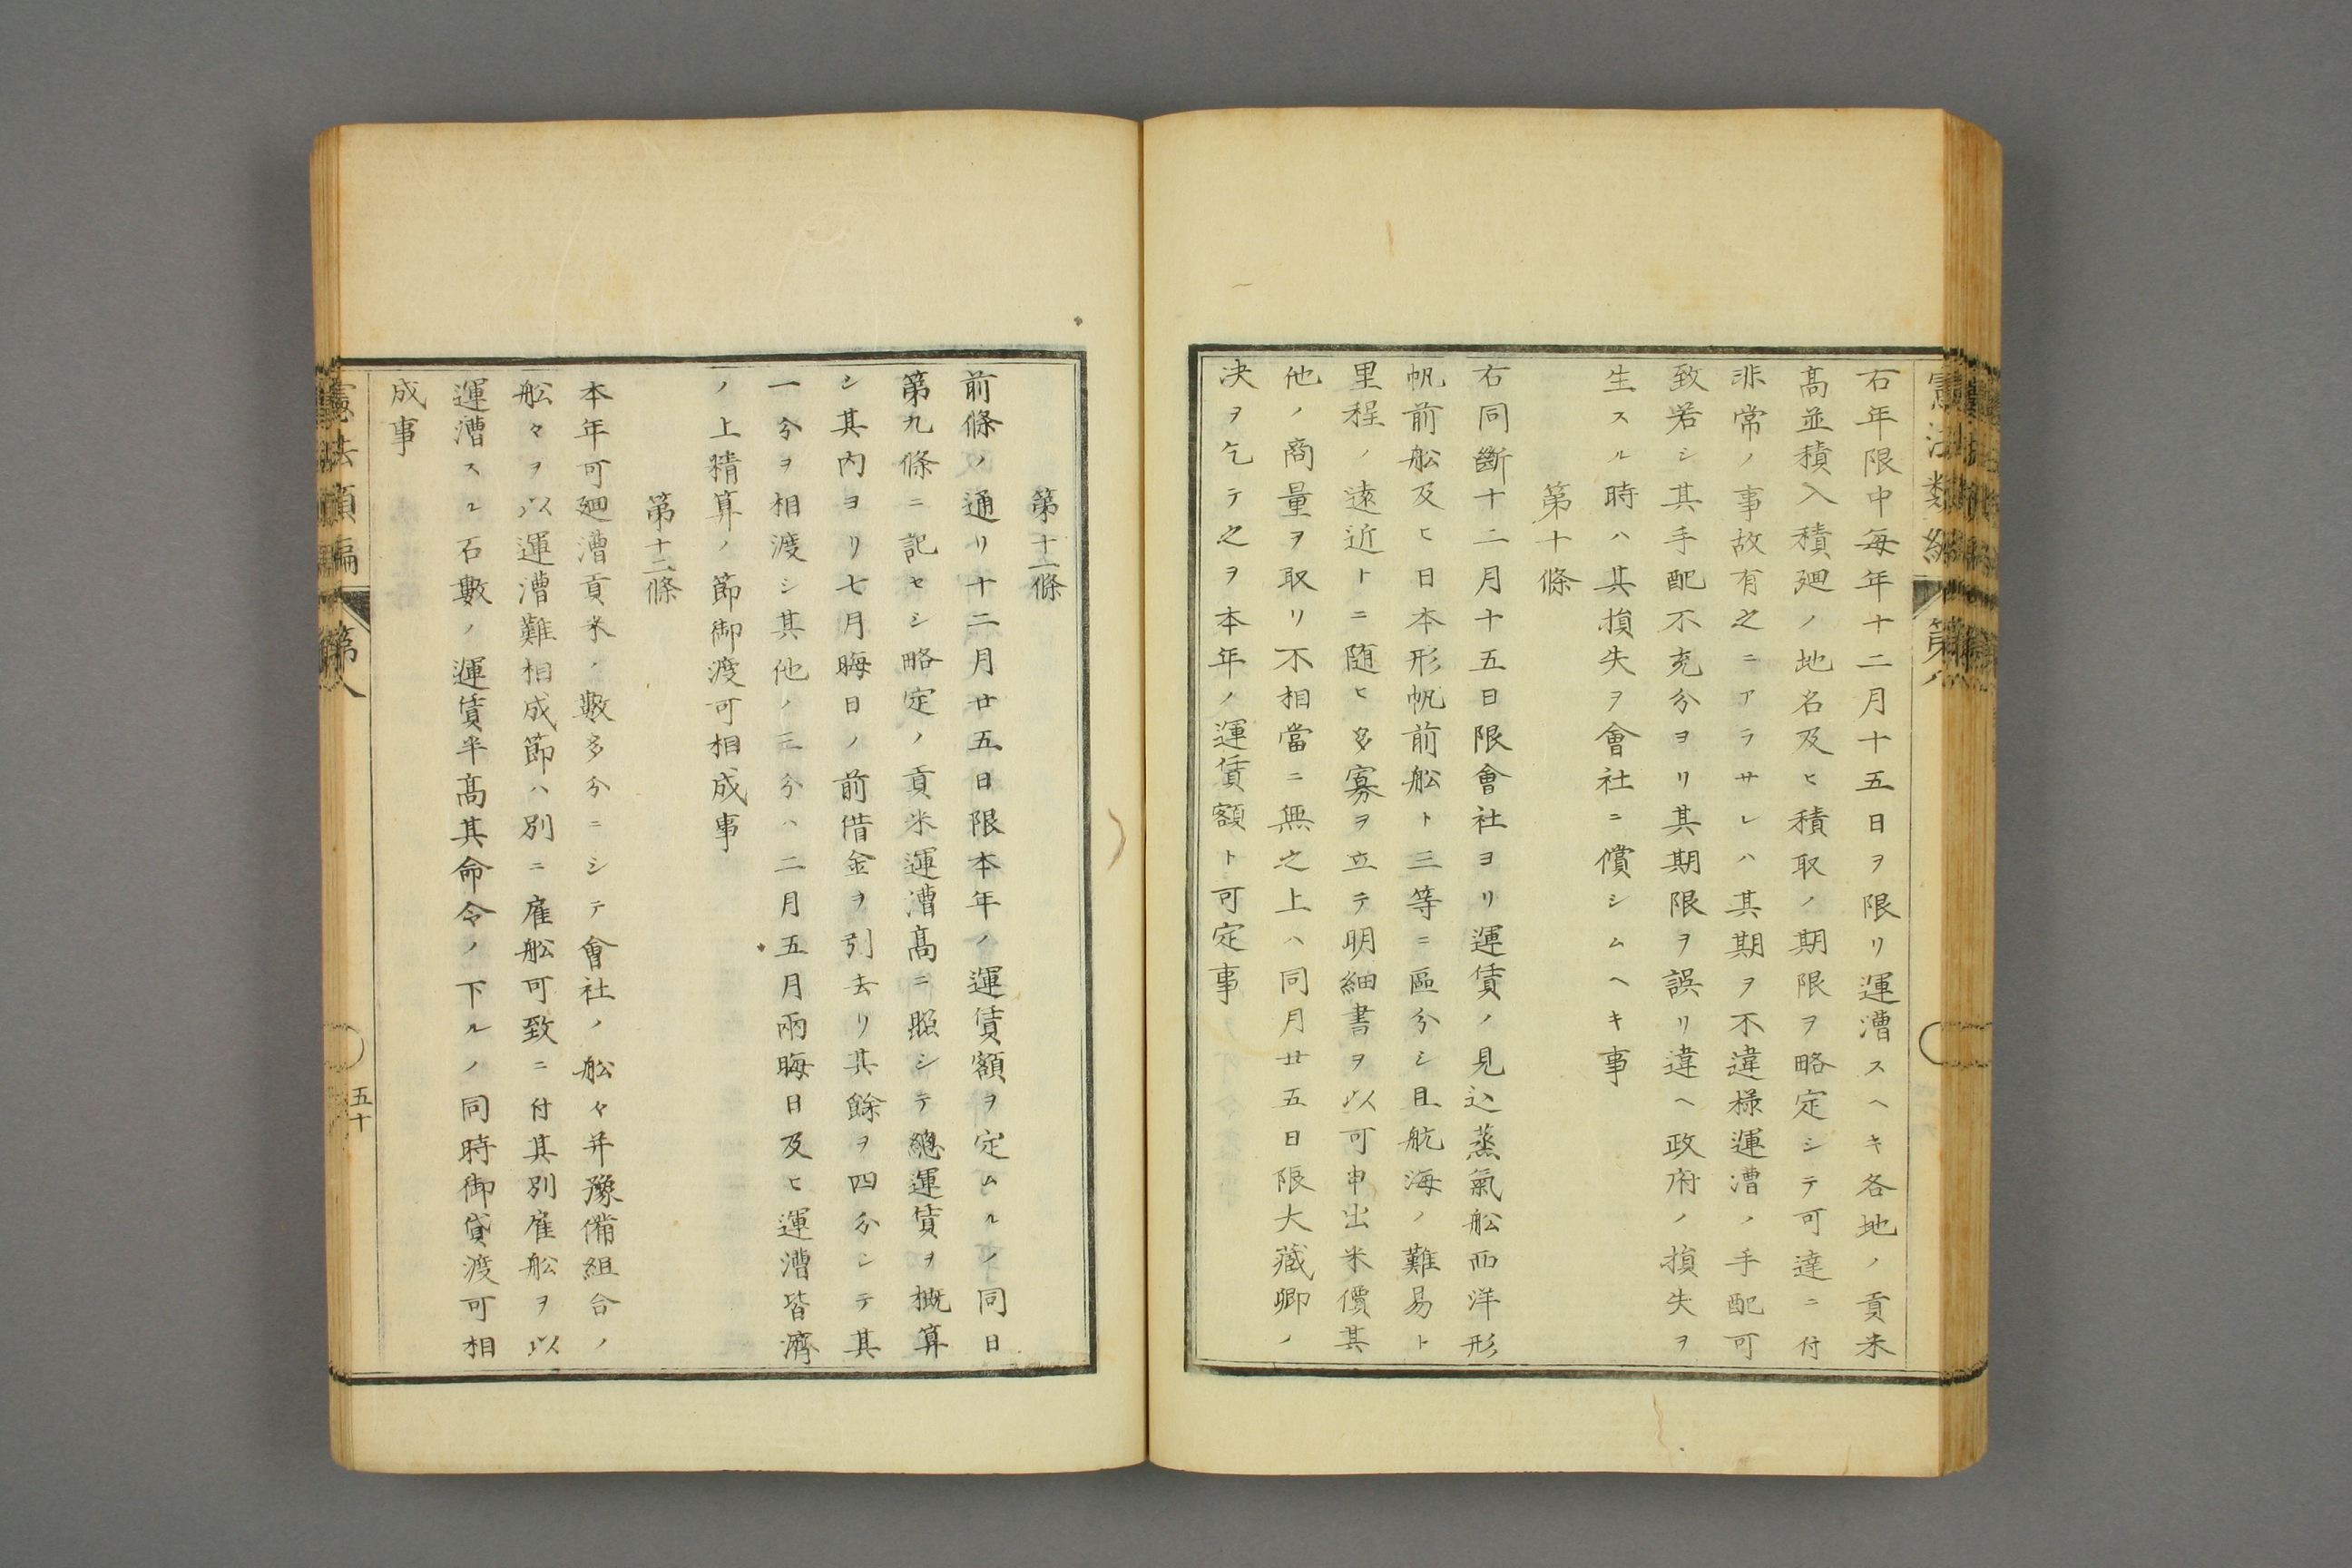 右年限中毎年十二月十五日ヲ限リ運漕スヘキ各地ノ貢米
髙並積入積廻ノ地名及ヒ積取ノ期限ヲ略定シテ可達ニ付
非常ノ事故有之ニアラサレハ其期ヲ不違様運漕ノ手配可
致若シ其手配不充分ヨリ其期限ヲ誤リ違ヘ政府ノ損失ヲ
生スル時ハ其損失ヲ會社ニ償シムヘキ事
第十條
右同斷十二月十五日限會社ヨリ運賃ノ見込蒸氣舩西洋形
帆前舩及ヒ日本形帆前舩ト三等ニ區分シ且航海ノ難易ト
里程ノ遠近トニ随ヒ多寡ヲ立テ明細書ヲ以可申出米價其
他ノ商量ヲ取リ不相當ニ無之上ハ同月廿五日限大藏卿ノ
决ヲ乞テ之ヲ本年ノ運賃額ト可定事
第十一條
前條ノ通リ十二月廿五日限本年ノ運賃額ヲ定ムルノ同日
第九條ニ記セシ略定ノ貢米運漕髙ニ照シテ總運賃ヲ概算
シ其内ヨリ七月晦日ノ前借金ヲ引去リ其餘ヲ四分シテ其
一分ヲ相渡シ其他ノ三分ハ二月五月兩晦日及ヒ運漕皆濟
ノ上精算ノ節御渡可相成事
第十二條
本年可廻漕貢米ノ數多分ニシテ會社ノ舩々并豫備組合ノ
舩々ヲ以運漕難相成節ハ別ニ雇舩可致ニ付其別雇舩ヲ以
運漕スル石數ノ運賃半髙其命令ノ下ルノ同時御貸渡可相
成事
憲法類編 第八
五十